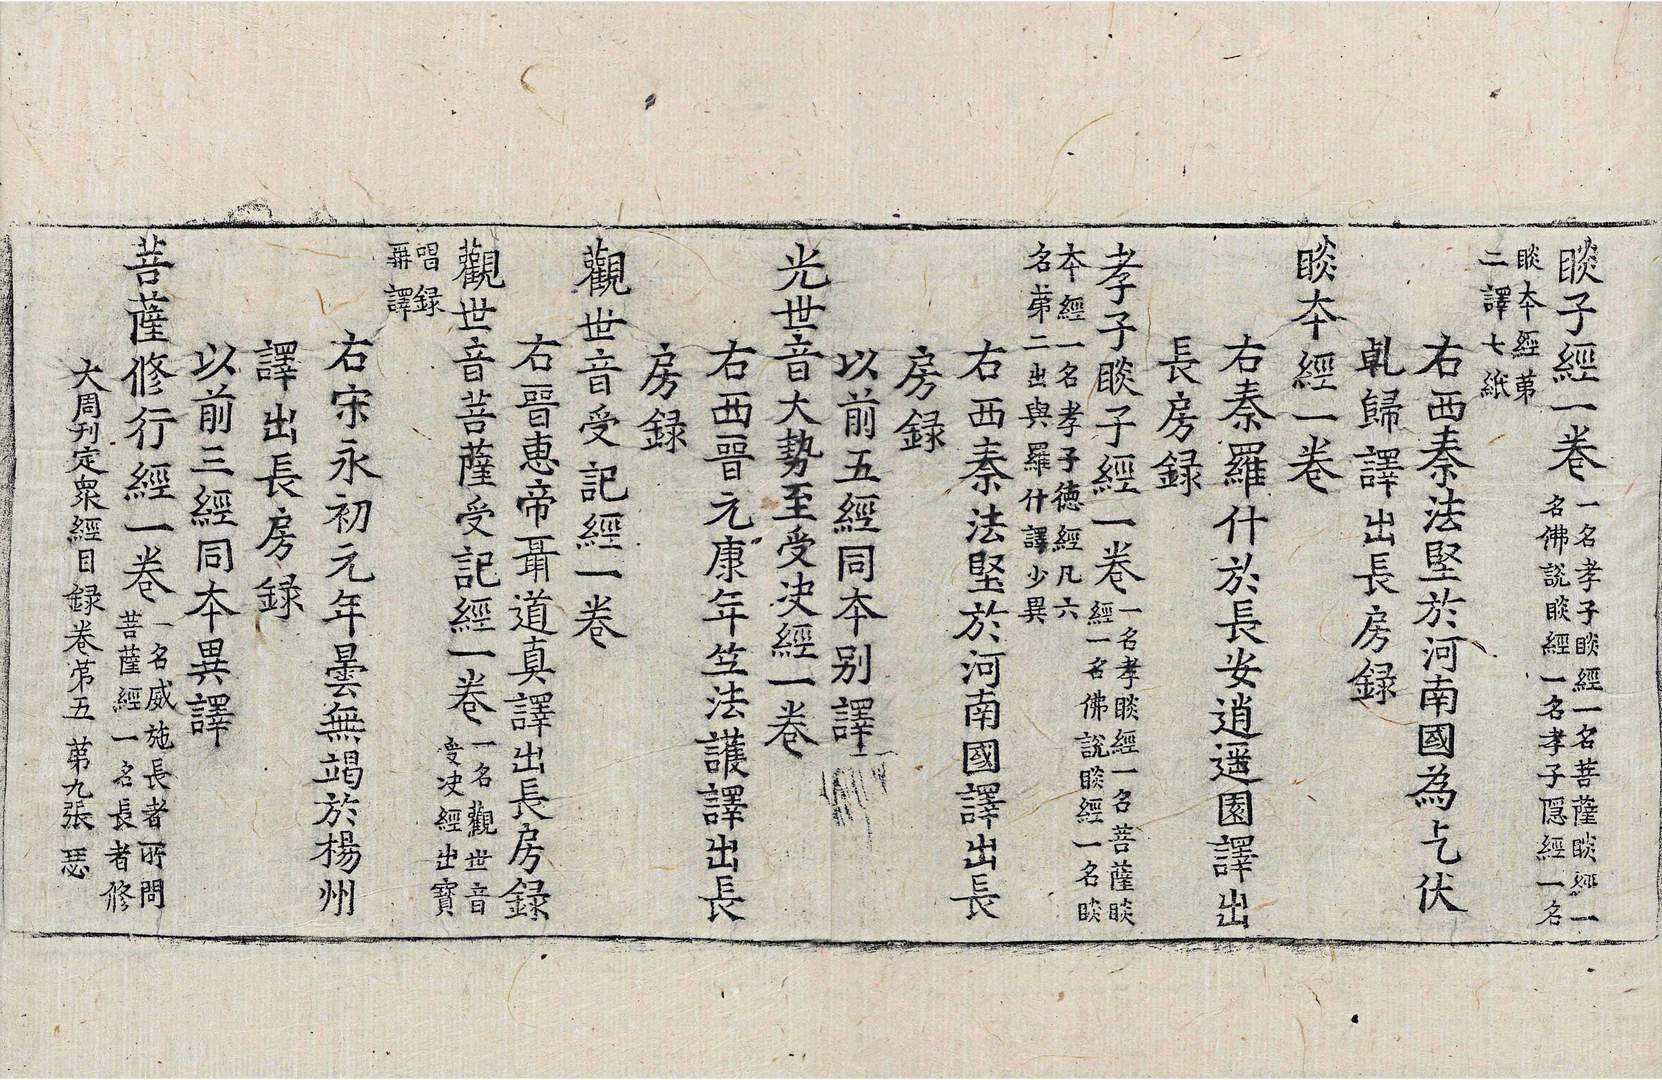 睒子經一卷 一名孝子睒經一名菩薩睒經一
名佛說睒經一名孝子隱經一名
睒本經第
二譯七紙
右西秦法堅於河南國為乞伏
乹歸譯出長房録
睒本經一卷
右秦羅什於長安逍遥園譯出
長房録
孝子睒子經一卷 一名孝睒經一名菩薩睒
經一名佛說睒經一名睒
本經一名孝子德經凡六
名第二出與羅什譯少異
右西秦法堅於河南國譯出長
房録
以前五經同本别譯
光世音大勢至受决經一卷
右西晉元康年竺法護譯出長
房録
觀世音受記經一卷
右晉惠帝聶道真譯出長房録
觀世音菩薩受記經一卷 一名觀世音
受决經出寶
唱録
再譯
右宋永初元年曇無竭於楊州
譯出長房録
以前三經同本異譯
菩薩修行經一卷 一名威施長者所問
菩薩經一名長者修
大周刊定衆經目録卷第五 第九張 瑟